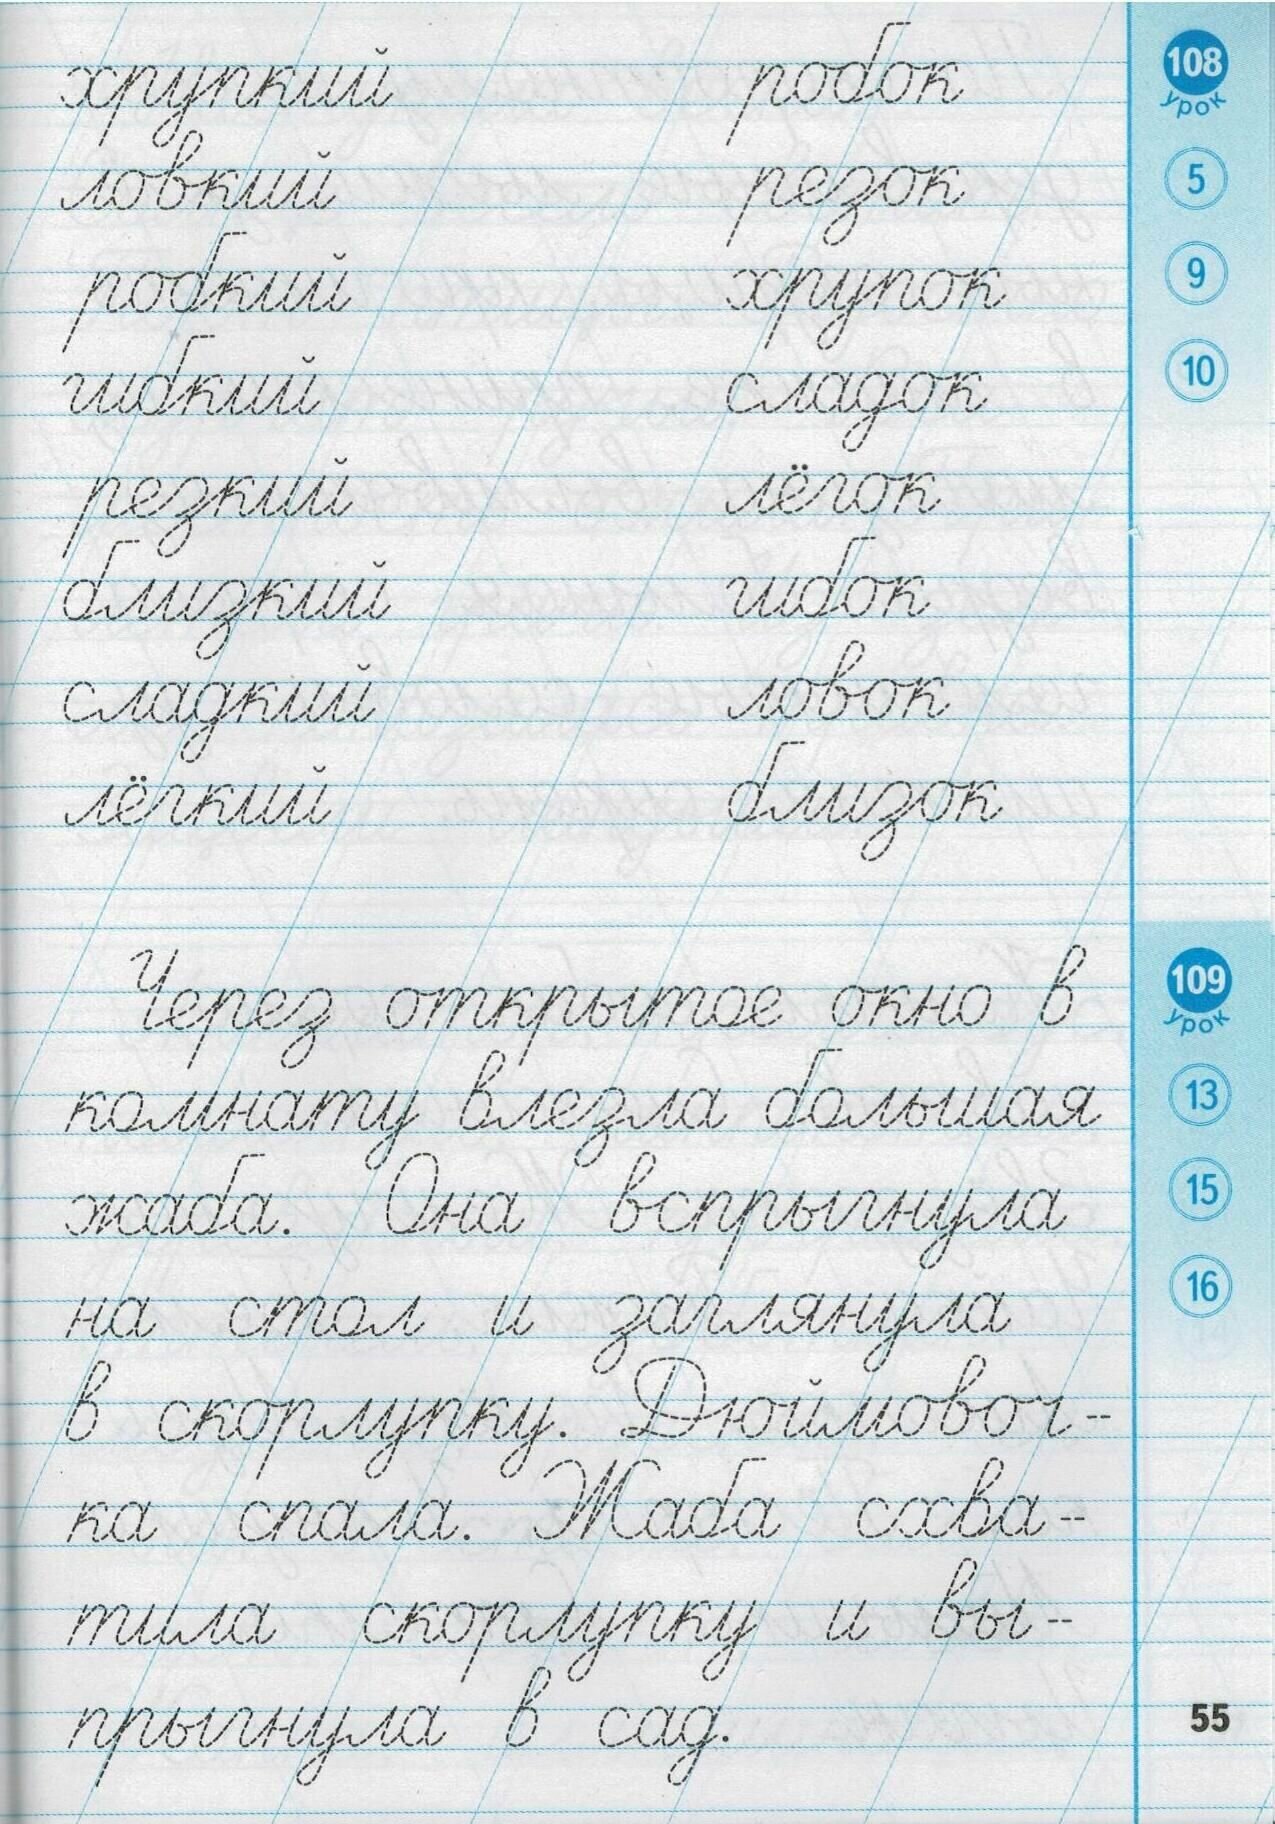 хрупкий робок
ловкий резок
робкий хрупок
гибкий сладок
резкий лёгок
близкий гибок
сладкий ловок
лёгкий близок
108
урок
5
9
10
Через открытое окно в
комнату влезла большая
жаба. Она вспрыгнула
на стол и заглянула
в скорлупку. Дюймовоч-
ка спала. Жаба схва-
тила скорлупку и вы-
прыгнула в сад.
109
урок
13
15
16
55